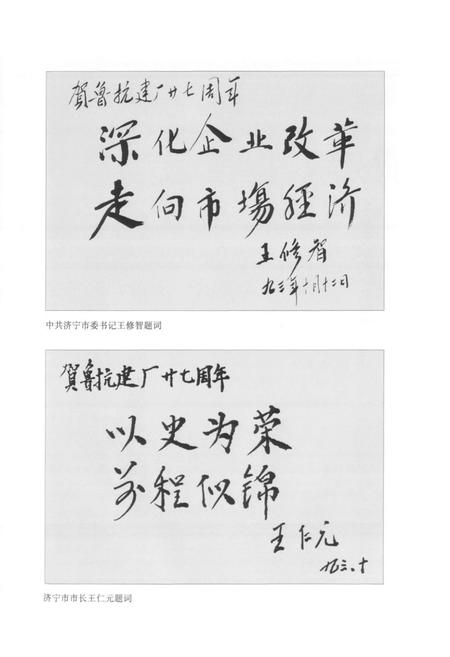 賀魯抗建厂廿七周年
深化企业改革
走向市場經济
王修智
九三年十月十二日
中共济宁市委书记王修智题词
賀魯抗建厂廿七周年
以史为荣
前程似锦
王仁元
九三.十
济宁市市长王仁元题词